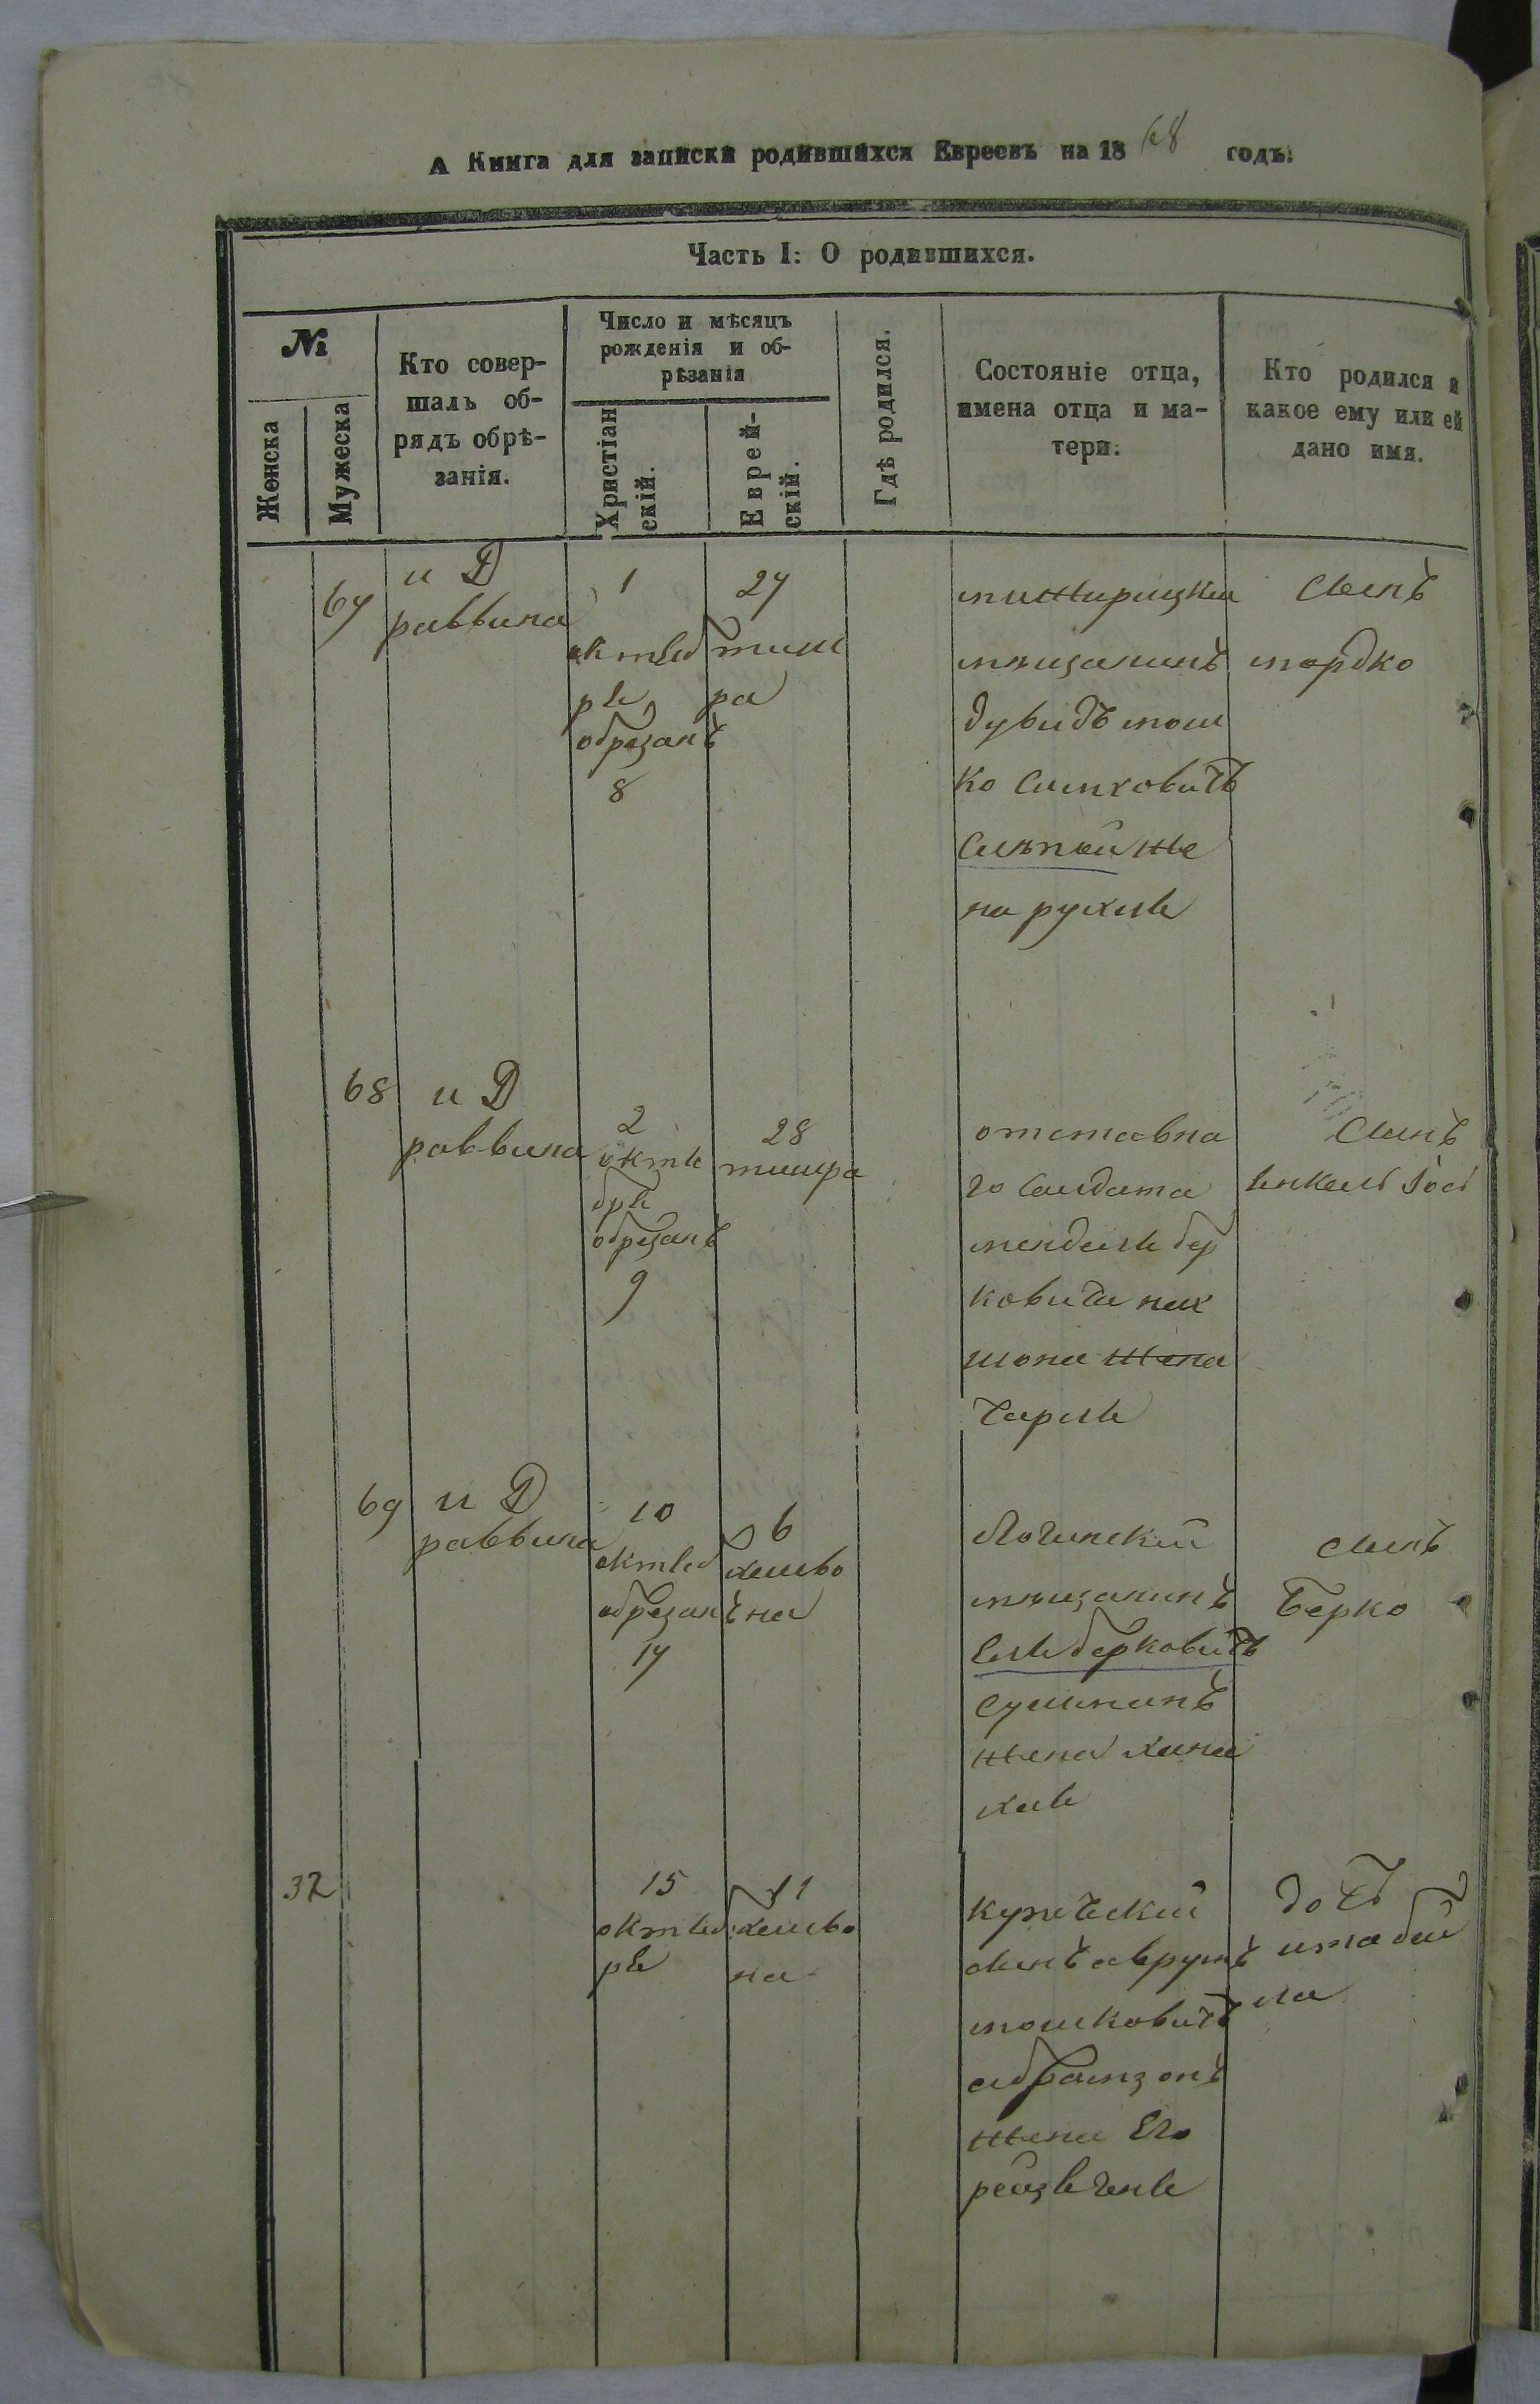 А Книга для записки родившихся Евреевъ на 1868 годъ:
Часть I: О родившихся.
№
Женска
Мужеска
Кто совер-
шалъ об-
рядъ обрѣ-
занія.
Число и мѣсяцъ
рожденія и об-
рѣзанія
Христіан
скій.
Еврей-
скій.
Гдѣ родился.
Состояніе отца,
имена отца и ма-
тери.
Кто родился и
какое ему или ей
дано имя.
67
и Д
раввина
1
октяб
ря
обрезанъ
8
27
тиш
ра
мещанинъ
дувидъ мош
ко Симховичъ
Слѣпой же
на рухля
Сынъ
мордко
68
и Д
раввина
2
октя
бря
обрезанъ
9
28
тишра
отставна
го Салдата
менделя бер
ковича нах
мона жена
Чарля
Сынъ
69
и Д
раввина
10
октяб
обрезанъ
17
6
хешво
на
мещанинъ
Еля берковичъ
жена хана
хая
сынъ
Берко
32
15
октяб
ря
11
хешво
на
купеческий
сынъ аврумъ
мошковичъ
абрамзонъ
жена Его
дочъ
ита бей
ла